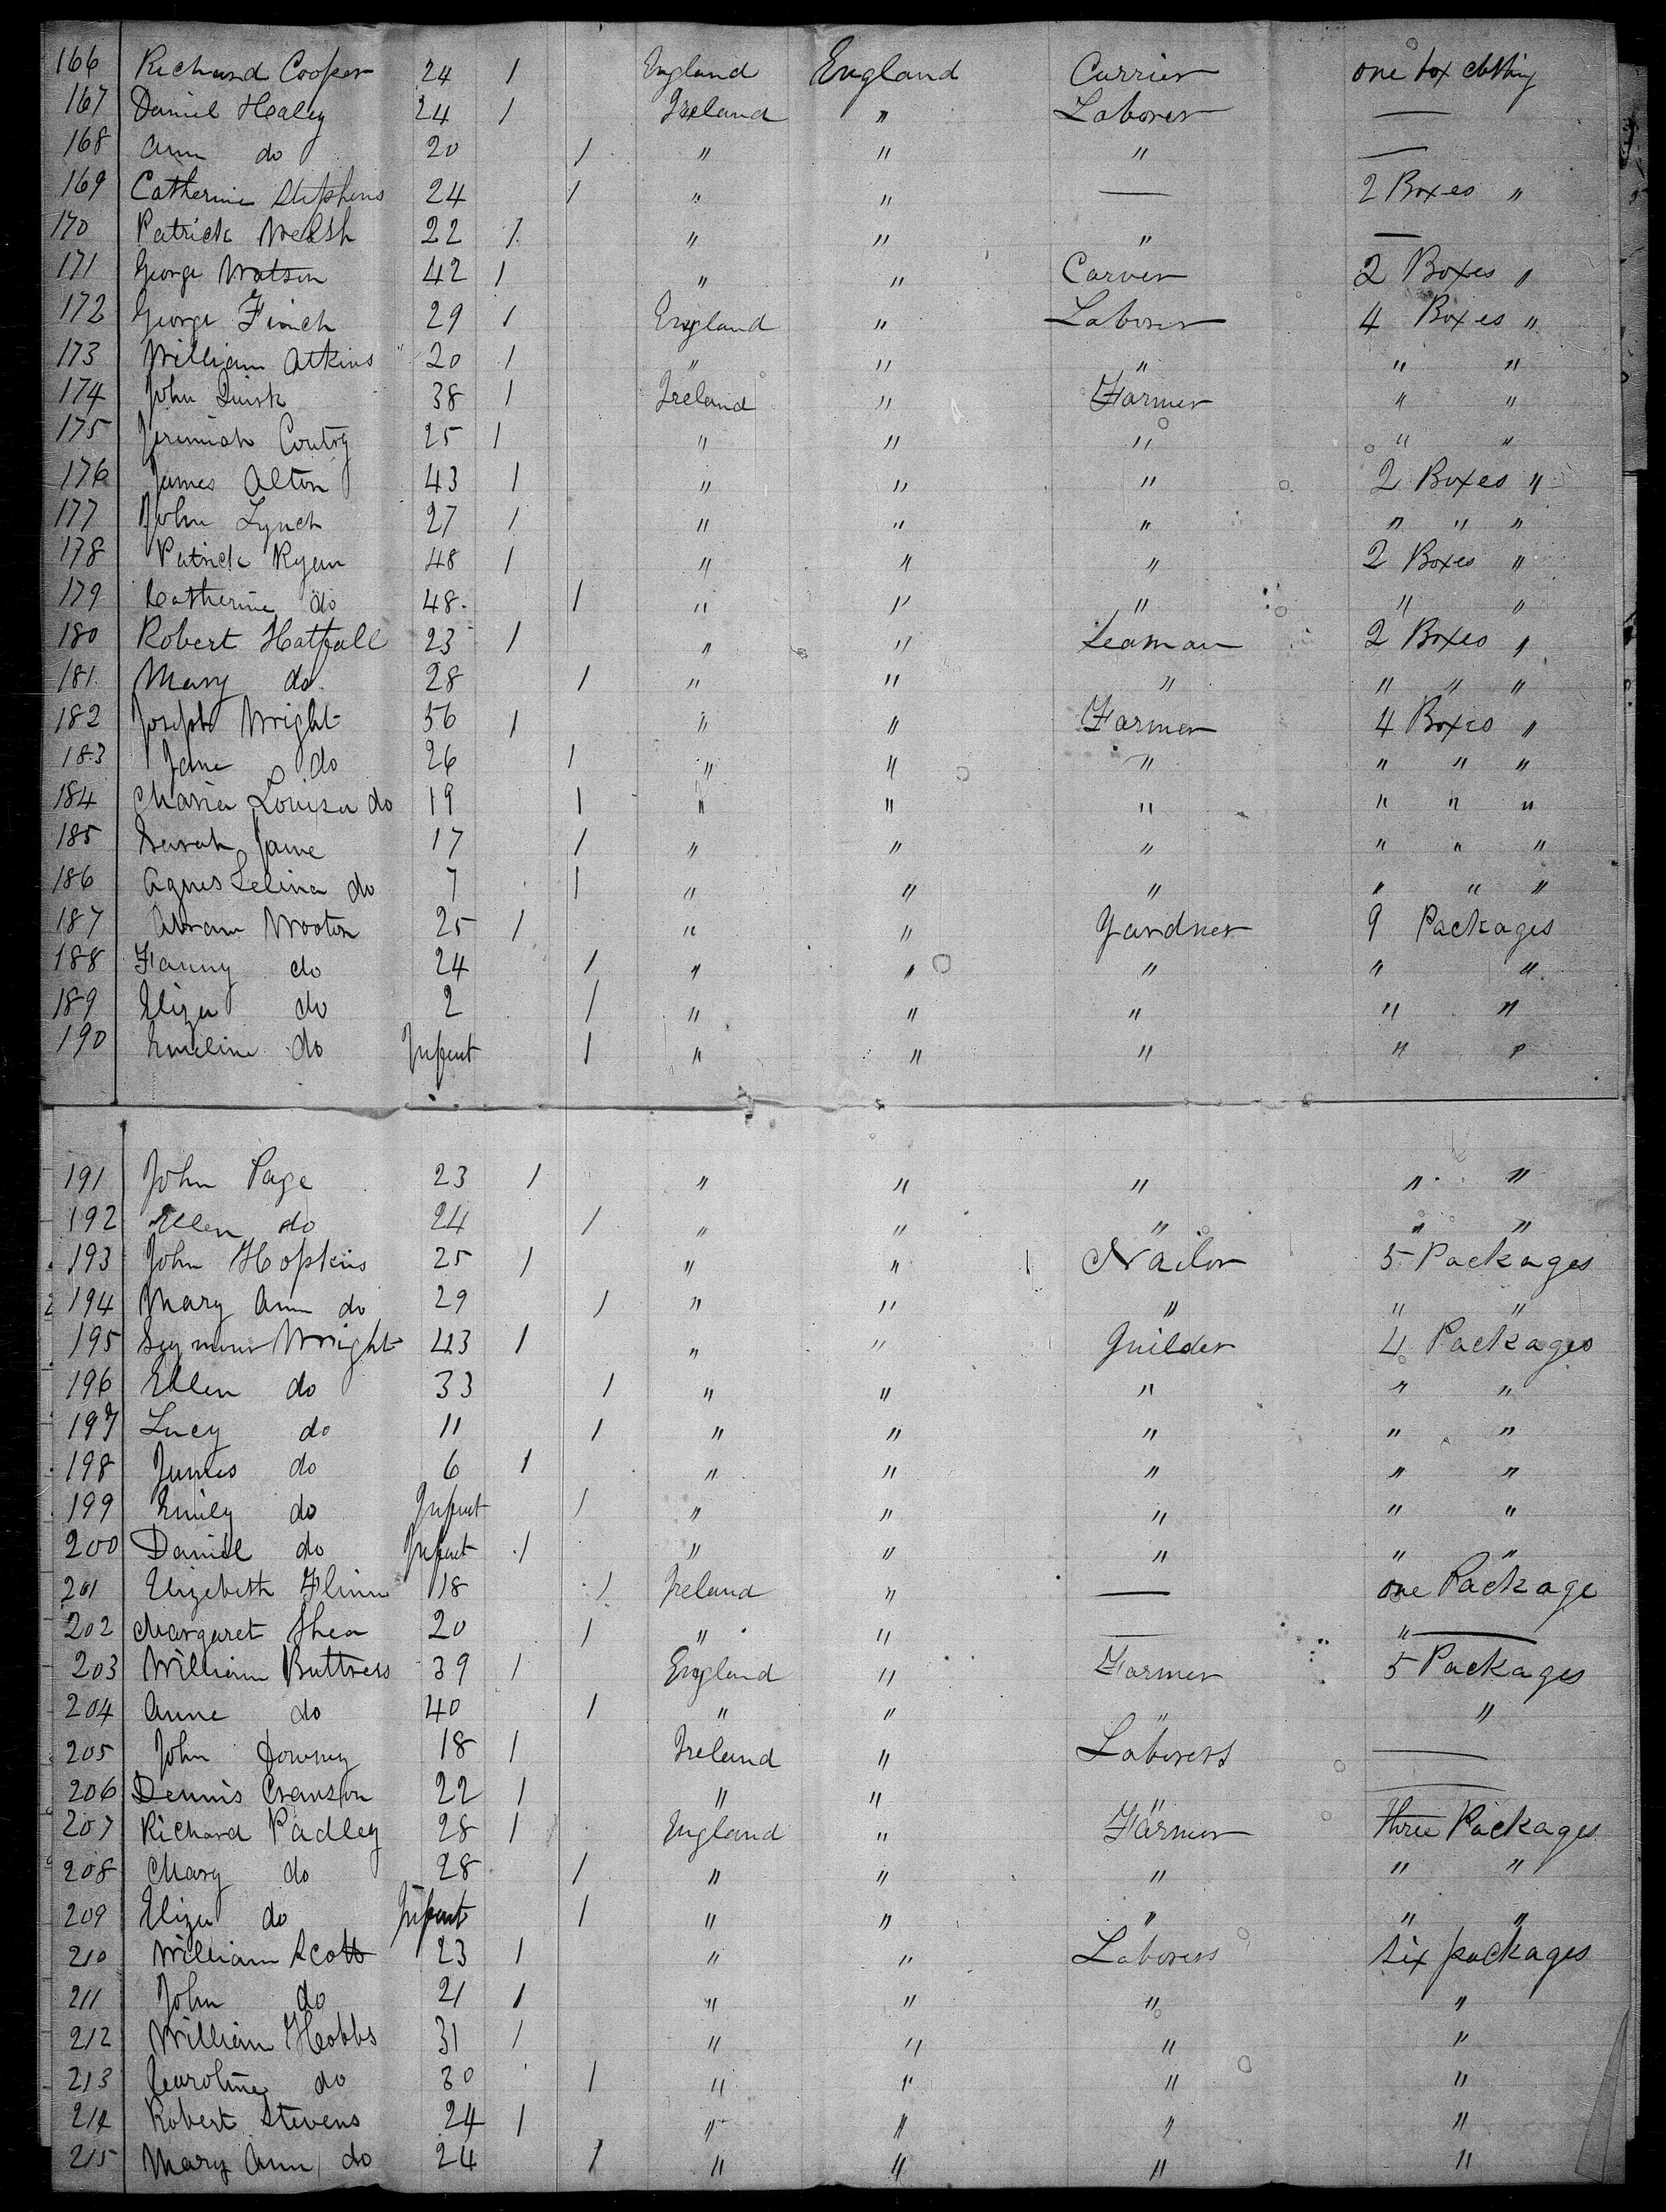 166 Richard Cooper 24 1 England England Currier one box clothing
167 Daniel Healey 24 1 Ireland " Laborer —
168 Ann do 20 1 " " " —
169 Catherine Stephens 24 1 " " — 2 Boxes "
170 Patrick Welsh 22 1 " " " —
171 George Watson 42 1 " " Carver 2 Boxes "
172 George Finch 29 1 England " Laborer 4 Boxes "
173 William Atkins 20 1 " " " " "
174 John Quirk 38 1 Ireland " Farmer " "
175 Jeremiah 25 1 " " " " "
176 James Alton 43 1 " " " 2 Boxes "
177 John Lynch 27 1 " " " " " "
178 Patrick Ryan 48 1 " " " 2 Boxes "
179 Catherine do 48 1 " " " " "
180 Robert Hatfall 23 1 " " Seaman 2 Boxes "
181 Mary do 28 1 " " " " " "
182 Joseph Wright 56 1 " " Farmer 4 Boxes "
183 Jane do 26 1 " " " " " "
184 Maria Louisa do 19 1 " " " " " "
185 Sarah Jane 17 1 " " " " " "
186 Agnes Selina do 7 1 " " " " " "
187 Abram Wooton 25 1 " " Gardner 9 Packages
188 Fanny do 24 1 " " " " "
189 Eliza do 2 1 " " " " "
190 Emeline do Infant 1 " " " " "
191 John Page 23 1 " " " " "
192 Ellen do 24 1 " " " " "
193 John Hopkins 25 1 " " Nailor 5 Packages
194 Mary Ann do 29 1 " " " " "
195 Seymour Wright 43 1 " " Guilder 4 Packages
196 Ellen do 33 1 " " " " "
197 Lucy do 11 1 " " " " "
198 James do 6 1 " " " " "
199 Emily do Infant 1 " " " " "
200 Daniel do Infant 1 " " " " "
201 Elizebeth Flinn 18 1 Ireland " — one Package
202 Margaret Shea 20 1 " " — " —
203 William Buttress 39 1 England " Farmer 5 Packages
204 Anne do 40 1 " " " "
205 John Downey 18 1 Ireland " Laborers —
206 Dennis Cranston 22 1 " " " —
207 Richard Padley 28 1 England " Farmer three Packages
208 Mary do 28 1 " " " " "
209 Eliza do Infant 1 " " " " "
210 William Scott 23 1 " " Laborers six packages
211 John do 21 1 " " " "
212 William Hobbs 31 1 " " " "
213 Caroline do 30 1 " " " "
214 Robert Stevens 24 1 " " " "
215 Mary Ann do 24 1 " " " "